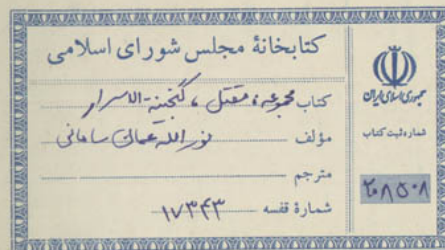 کتابخانهٔ مجلس شورای اسلامی
کتاب مجموعه، مقتل، گنجینة الاسرار
مؤلف نورالله عمان سامانی
مترجم
شمارهٔ قفسه ۱۷۳۴۳
جمهوری اسلامی ایران
شماره ثبت کتاب
۲۰۸۵۰۸